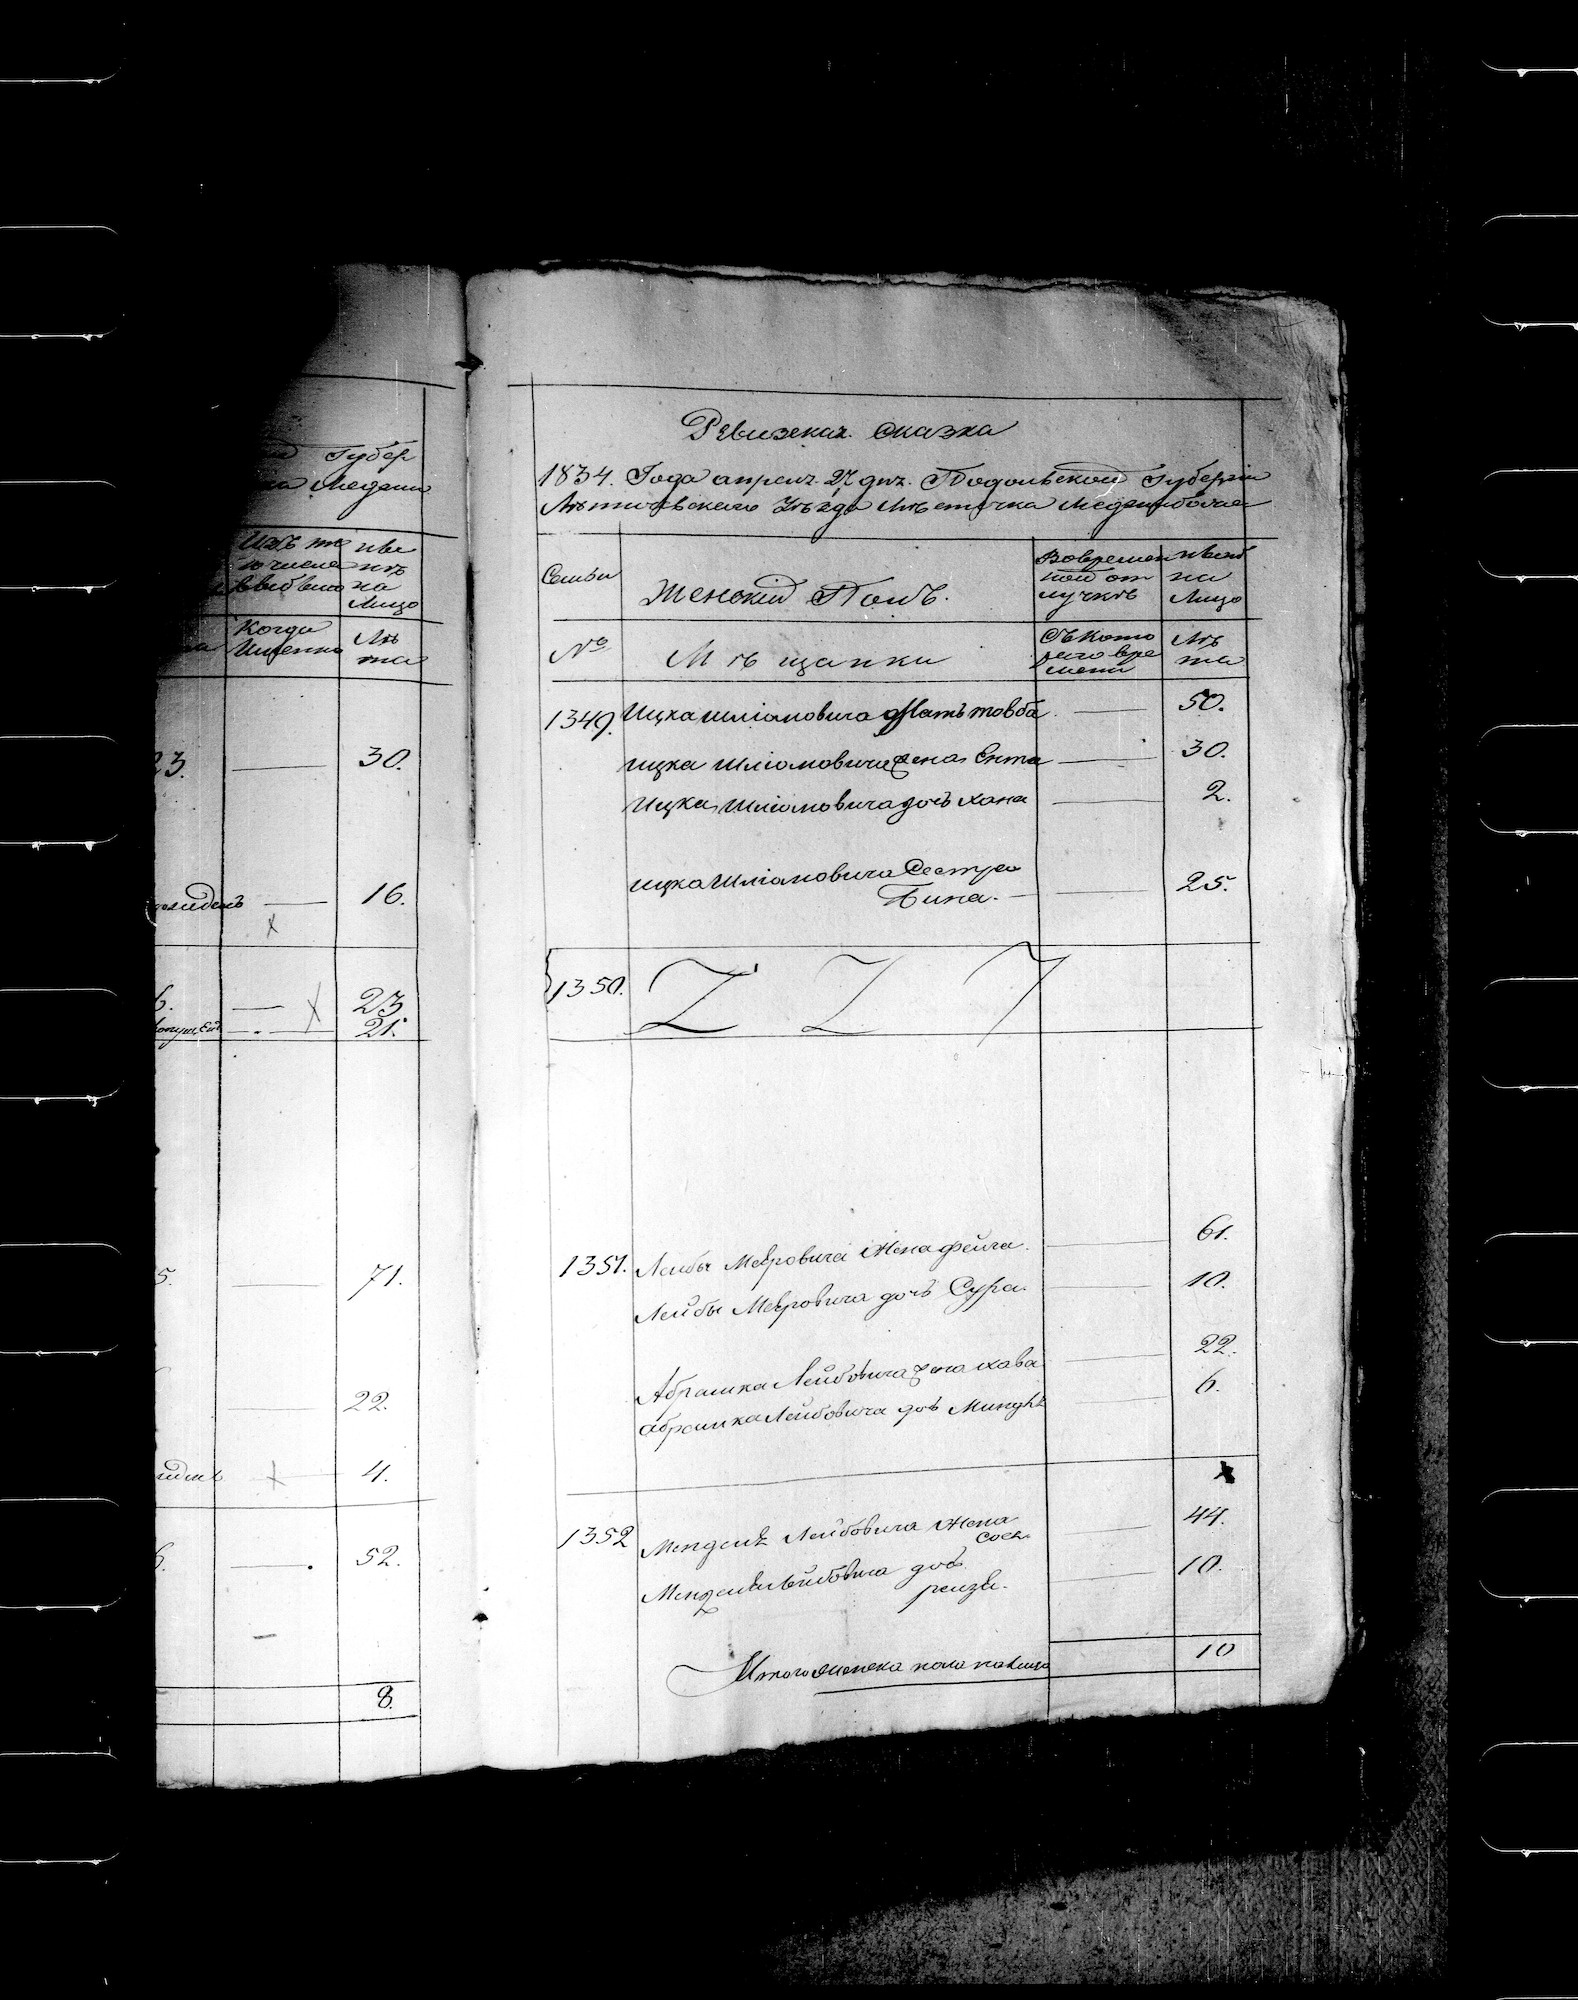 Губер
Медажи
Изъ то
го числа
выбыло
Когда
Именно
на
Лицо
Лѣ
та
23. 30.
16.
6. 23.
21.
5. 71.
22.
4.
6. 52.
8.
Ревизская Сказка
1834. Года апреля 27 дня. Подольской Губерніи
Лѣтичевского Уѣзда Мѣстечка Меджибожа
Семьи
Женский Полъ.
Вовремен
ной от
лучкѣ
на
Лицо
№
Мѣщанки
Съ Кото
рого вре
мени
Лѣ
та
1349. Ицка Шліомовича Мать товба 50.
Ицка Шліомовича жена Ента 30.
Ицка Шліомовича дочь хана 2.
Ицка Шліомовича Сестра
Бина. 25.
1350.
1351. Лейбы Меэровича Жена фейга. 61.
Лейбы Меэровича дочь Сура. 10.
Абрамка Лейбовича жена хава 22.
Абрамка Лейбовича дочь Миндля 6.
1352 Менделя Лейбовича Жена
Сося 44.
Менделя Лейбовича дочь
рейзя. 10.
Итого женска пола налицо 10